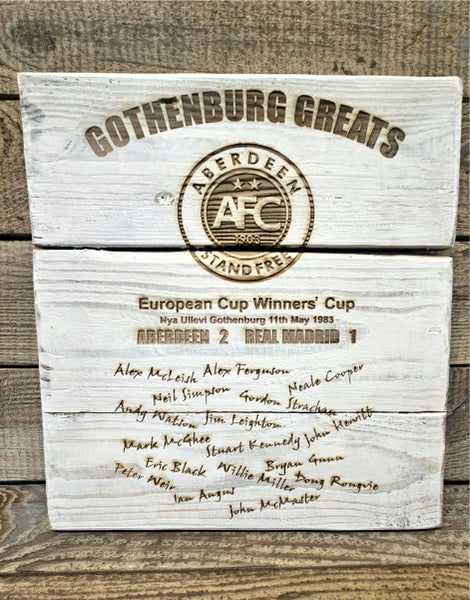 GOTHENBURG GREATS
ABERDEEN
AFC
1903
STAND FREE
European Cup Winners' Cup
Nya Ullevi Gothenburg 11th May 1983
ABERDEEN 2 REAL MADRID 1
Alex McLeish Alex Ferguson
Neil Simpson Gordon Strachan Neale Cooper
Andy Watson Jim Leighton
Mark McGhee Stuart Kennedy John Hewitt
Eric Black Willie Miller Bryan Gunn
Peter Weir Ian Angus Doug Rongvie
John McMaster